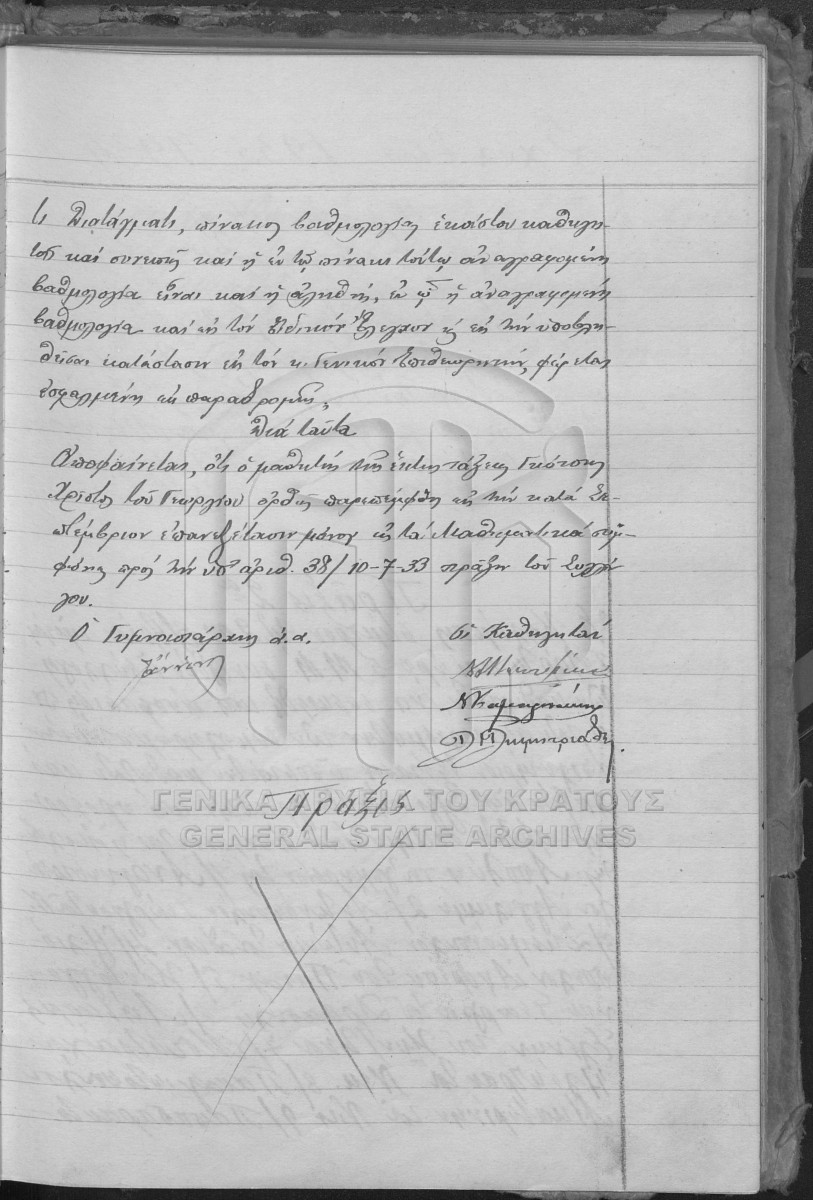 τι Διατάγματι, πίνακος βαθμολογίας ἑκάστου καθηγη-
τοῦ καὶ συνεπῶς καὶ ἡ ἐν τῷ πίνακι τούτῳ ἀναγραφομένη
βαθμολογία εἶναι καὶ ἡ ἀληθής, ἐν ᾧ ἡ ἀναγραφομένη
βαθμολογία καὶ εἰς τὸν Εἰδικὸν Ἔλεγχον ἢ εἰς τὴν ὑποβλη-
θεῖσαν κατάστασιν εἰς τὸν κ. Γενικὸν Ἐπιθεωρητήν, φέρεται
ἐσφαλμένη ἐκ παραδρομῆς,
Διὰ ταῦτα
Ἀποφαίνεται, ὅτι ὁ μαθητὴς τῆς ἕκτης τάξεως Γκότσης
Χρῆστος τοῦ Γεωργίου ὀρθῶς παρεπέμφθη εἰς τὴν κατὰ Σε-
πτέμβριον ἐπανεξέτασιν μόνον εἰς τὰ Μαθηματικὰ συμ-
φώνως πρὸς τὴν ὑπ' ἀριθ. 38/10-7-33 πρᾶξιν τοῦ Συλλό-
γου.
Ὁ Γυμνασιάρχης ἀ.α. Οἱ Καθηγηταί
Δημητριάδης
Πρᾶξις
ΓΕΝΙΚΑ ΑΡΧΕΙΑ ΤΟΥ ΚΡΑΤΟΥΣ
GENERAL STATE ARCHIVES